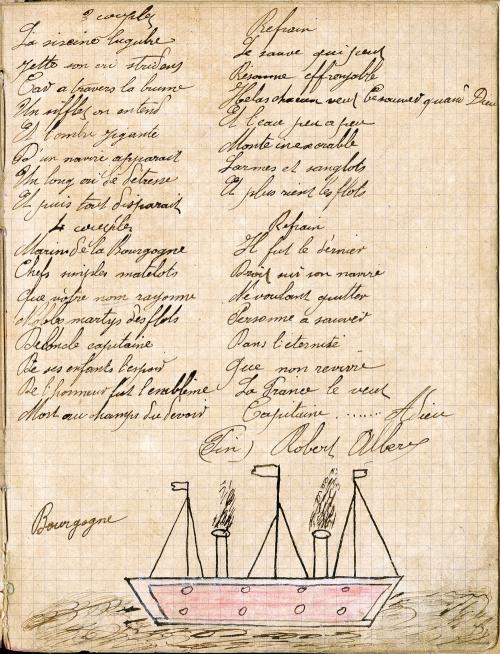 3 couplet
La siscine lugubre
Jette son cri strident
Car a travers la brume
Un sifflet on entend
Et l'ombre gigante
D'un navire apparait
Un long cri de détresse
Et puis tout disparait
4 couplet
Marins de la Bourgogne
Chefs simples matelots
Que votre nom rayonne
Nobles martyr des flots
capitaine
De ses enfants l'espoir
De l'honneur fut l'emblème
Mort au champs du devoir
Refrain
Le sauve qui peut
Résonne effroyable
Helas chacun veut se sauver quand Dieu
Et l'eau peu a peu
Monte inexorable
Larmes et sanglots
Et plus rient les flots
Refrain
Il fut le dernier
Droit sur son navire
Ne voulant quitter
Personne a sauver
Dans l'eternité
Que non revivre
La France le veut
Capitaine ....... Adieu
(Fin) Robert Albert
Bourgogne